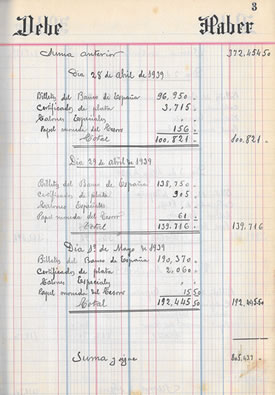 3
Debe Haber
Suma anterior 372.454 50
Dia 28 de Abril de 1939
Billets del Banco de España 96,950 "
Certificados de plata 3,715 "
Talones Especiales "
Papel moneda del Tesoro 156 "
Total 100.821 " 100.821 "
Dia 29 de abril de 1939
Billets del Banco de España 138,750 "
Certificados de plata 905 "
Talones Especiales "
Papel moneda del Tesoro 61 "
Total 139.716 " 139,716
Dia 1º de Mayo de 1939
Billetes del Banco de España 190,370 "
Certificados de plata 2,060 "
Talones Especiales "
Papel moneda del Tesoro 15 50
Total 192.445 50 192.445 50
Suma y sigue 805,437 "